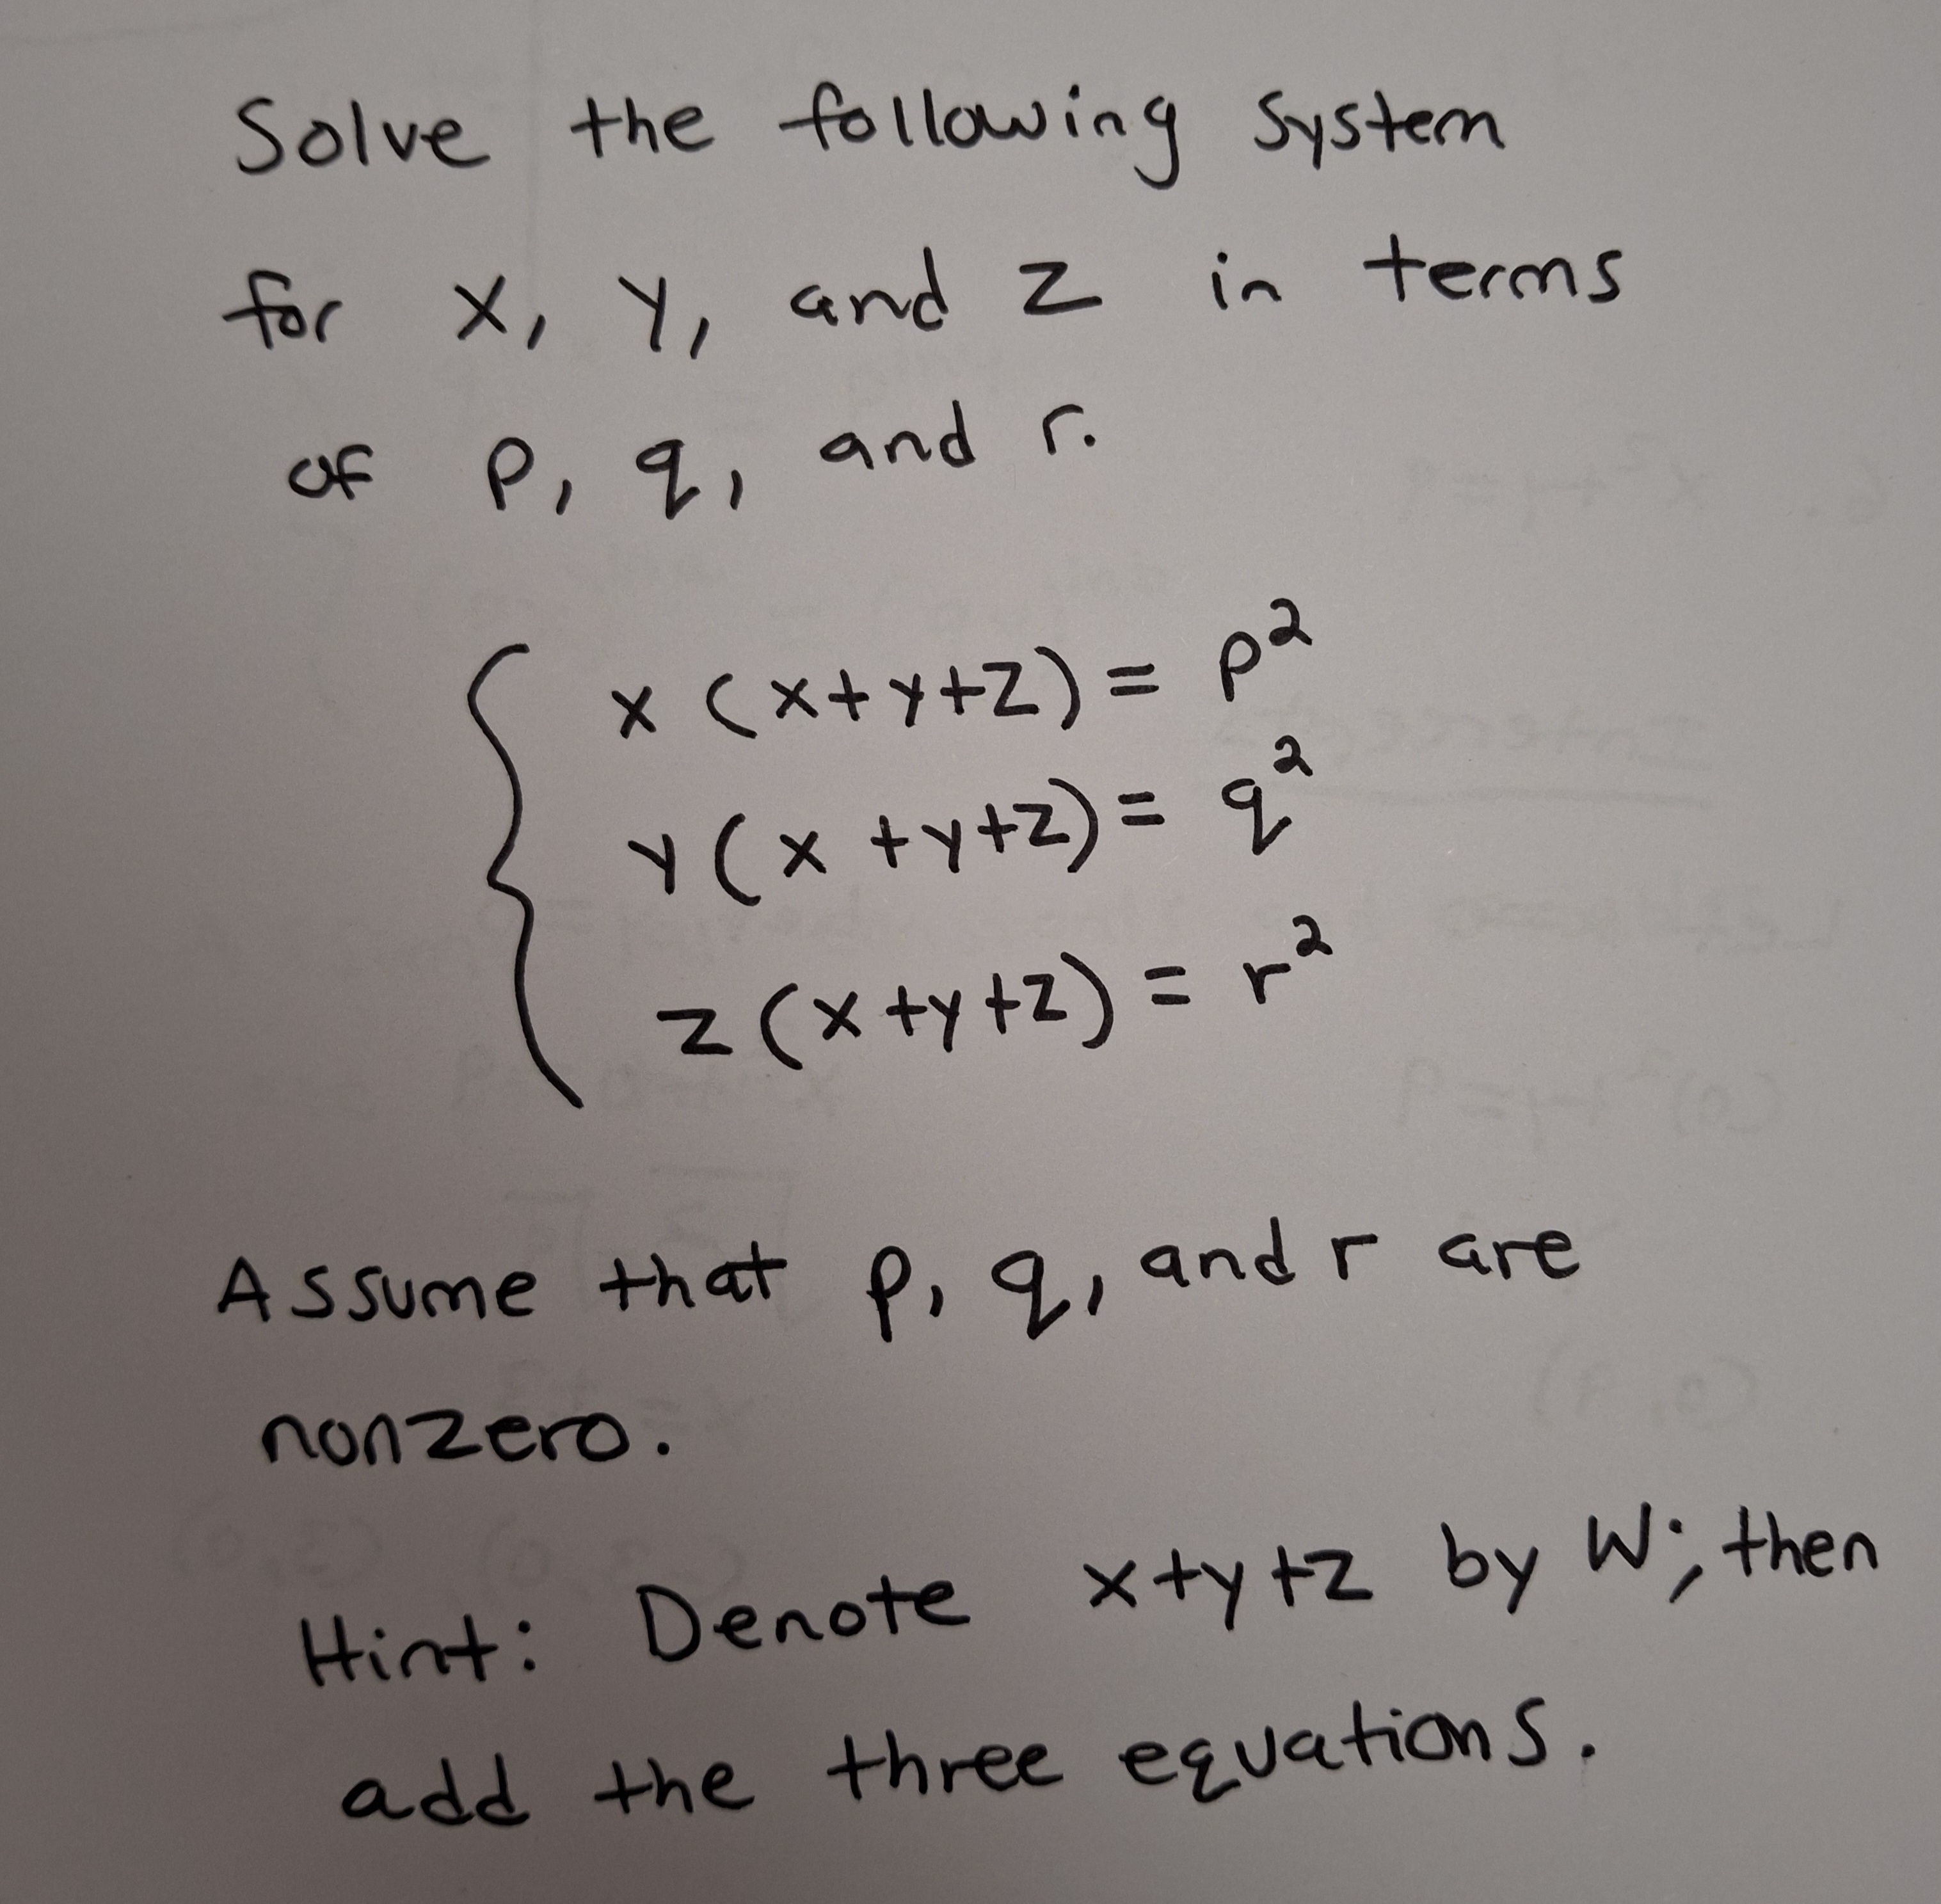 Solve the following system
for x, y, and z in terms
of p, q, and r.
x (x+y+z) = p²
y (x+y+z) = q²
z (x+y+z) = r²
Assume that p, q, and r are
nonzero.
Hint: Denote x+y+z by W; then
add the three equations.